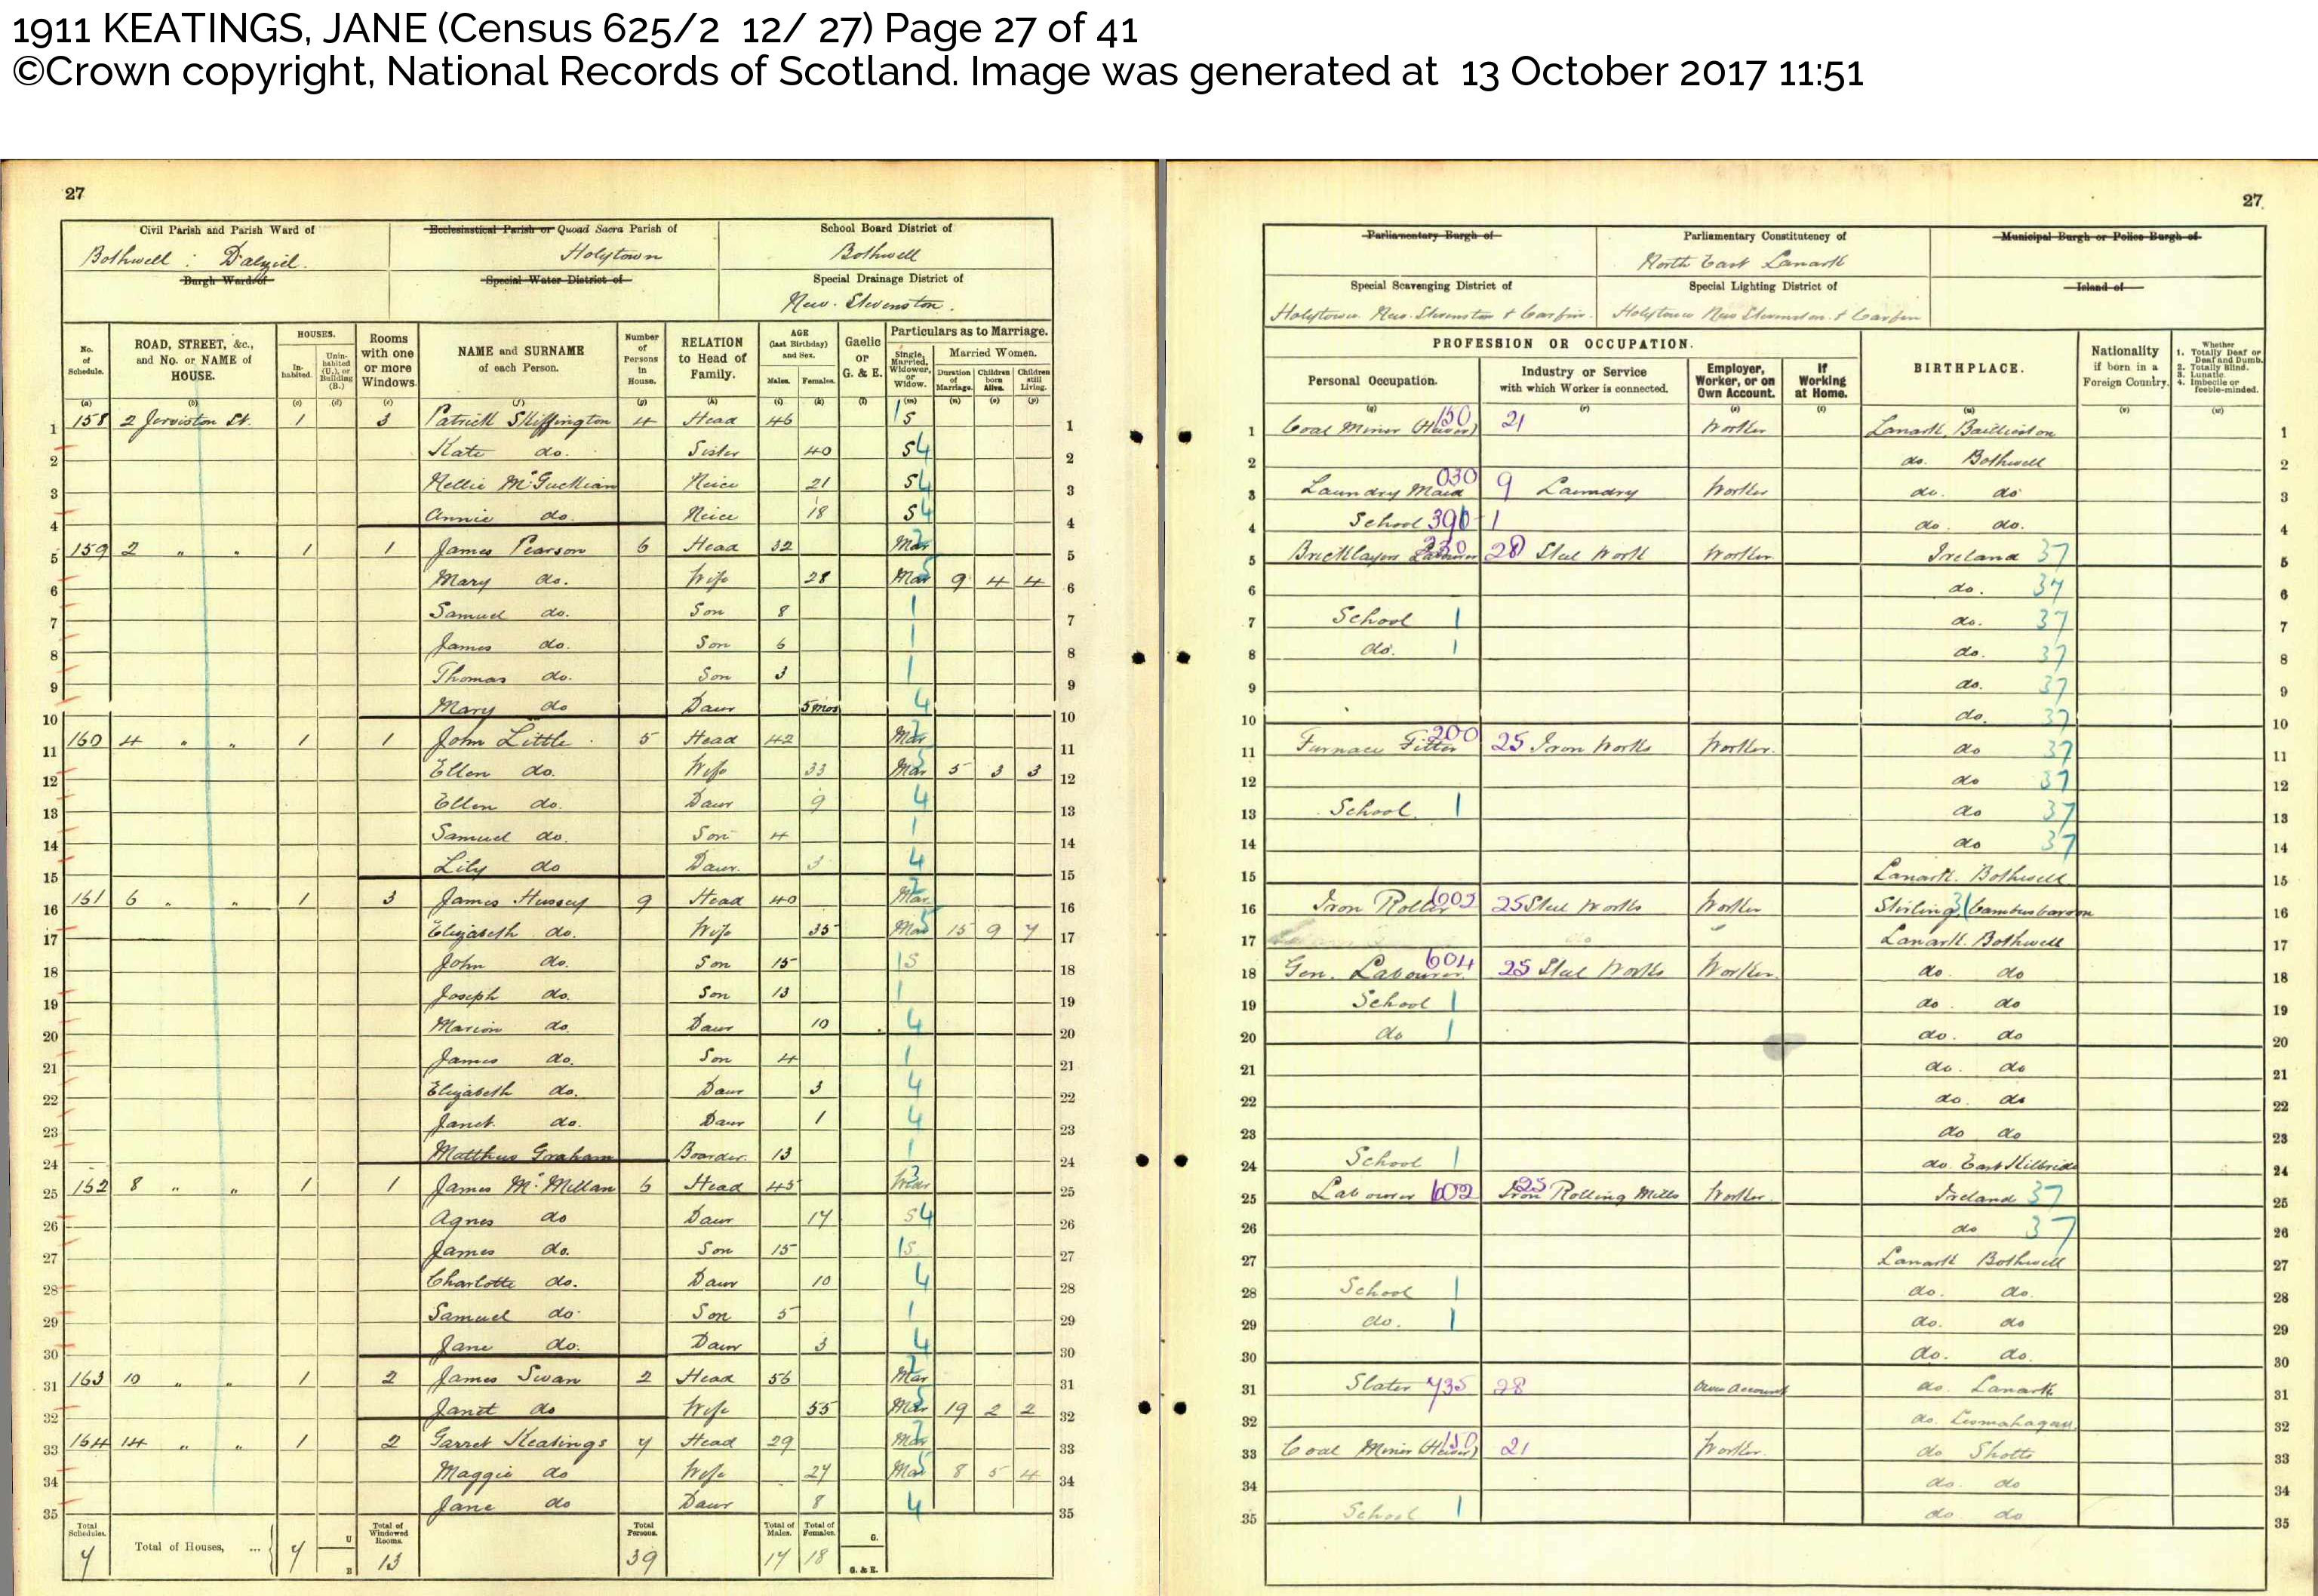 1911 KEATINGS, JANE (Census 625/2 12/ 27) Page 27 of 41
©Crown copyright, National Records of Scotland. Image was generated at 13 October 2017 11:51
27
27
Civil Parish and Parish Ward of
Bothwell : Dalziel.
Burgh Ward of
Ecclesiastical Parish or Quoad Sacra Parish of
Holytown
Special Water District of
School Board District of
Bothwell
Special Drainage District of
New. Stevenston.
Parliamentary Burgh of
Parliamentary Constitutency of
North East Lanark
Municipal Burgh or Police Burgh of
Special Scavenging District of
Holytown New Stevenston & Carfin.
Special Lighting District of
Holytown New Stevenston & Carfin
Island of
No. of Schedule. (a)
ROAD, STREET, &c., and No. or NAME of HOUSE. (b)
HOUSES.
Inhabited. (c)
Uninhabited (U.), or Building (B.) (d)
Rooms with one or more Windows. (e)
NAME and SURNAME of each Person. (f)
Number of Persons in House. (g)
RELATION to Head of Family. (h)
AGE (last Birthday) and Sex.
Males. (i)
Females. (k)
Gaelic or G. & E. (l)
Particulars as to Marriage.
Single, Married, Widower, or Widow. (m)
Married Women.
Duration of Marriage. (n)
Children born Alive. (o)
Children still Living. (p)
PROFESSION OR OCCUPATION.
Personal Occupation. (q)
Industry or Service with which Worker is connected. (r)
Employer, Worker, or on Own Account. (s)
If Working at Home. (t)
BIRTHPLACE. (u)
Nationality if born in a Foreign Country. (v)
Whether 1. Totally Deaf or Deaf and Dumb. 2. Totally Blind. 3. Lunatic. 4. Imbecile or feeble-minded. (w)
1 158 2 Jerviston St. 1 3 Patrick Skiffington 4 Head 46 1 S 1 Coal Miner (Hewer) 150 21 Worker Lanark, Baillieston 1
2 Kate do. Sister 40 S 4 2 do. Bothwell 2
3 Nellie McGuckian Neice 21 S 4 3 Laundry Maid 030 9 Laundry Worker do. do 3
4 Annie do. Neice 18 S 4 4 School 390 1 do. do. 4
5 159 2 " " 1 1 James Pearson 6 Head 32 Mar 5 Bricklayers Labourer 28 Steel Work Worker Ireland 37 5
6 Mary do. Wife 28 Mar 9 4 4 6 do. 37 6
7 Samuel do. Son 8 1 7 School 1 do. 37 7
8 James do. Son 6 1 8 do. 1 do. 37 8
9 Thomas do. Son 3 1 9 do. 37 9
10 Mary do Daur 5 mos 4 10 do. 37 10
11 160 4 " " 1 1 John Little 5 Head 42 Mar 11 Furnace Fitter 200 25 Iron Works Worker. do 37 11
12 Ellen do. Wife 33 Mar 5 3 3 12 do 37 12
13 Ellen do. Daur 9 4 13 School. 1 do 37 13
14 Samuel do. Son 4 1 14 do 37 14
15 Lily do Daur. 3 4 15 Lanark. Bothwell 15
16 161 6 " " 1 3 James Hussey 9 Head 40 Mar 16 Iron Roller 602 25 Steel Works Worker Stirling 31 Cambusbarron 16
17 Elizabeth do. Wife 35 Mar 15 9 7 17 Lanark. Bothwell 17
18 John do. Son 15 1 S 18 Gen. Labourer 604 25 Steel Works Worker. do. do 18
19 Joseph do. Son 13 1 19 School 1 do. do 19
20 Marion do. Daur 10 4 20 do 1 do. do 20
21 James do. Son 4 1 21 do. do 21
22 Elizabeth do. Daur 3 4 22 do. do 22
23 Janet do. Daur 1 4 23 do do 23
24 Matthew Graham Boarder. 13 1 24 School 1 do. East Kilbride 24
25 162 8 " " 1 1 James McMillan 6 Head 45 Widr 3 25 Labourer 602 25 Iron Rolling Mills Worker Ireland 37 25
26 Agnes do Daur 17 S 4 26 do 37 26
27 James do. Son 15 1 S 27 Lanark Bothwell 27
28 Charlotte do. Daur 10 4 28 School 1 do. do. 28
29 Samuel do. Son 5 1 29 do. 1 do. do 29
30 Jane do. Daur 3 4 30 do. do. 30
31 163 10 " " 1 2 James Swan 2 Head 56 Mar 31 Slater 735 28 Own Account do. Lanark 31
32 Janet do Wife 55 Mar 19 2 2 32 do. Lesmahagow. 32
33 164 14 " " 1 2 Garret Keatings 7 Head 29 Mar 33 Coal Miner (Hewer) 150 21 Worker. do Shotts 33
34 Maggie do Wife 27 Mar 8 5 4 34 do. do 34
35 Jane do Daur 8 4 35 School 1 do. do 35
Total Schedules. 7
Total of Houses, ... 7 U B
Total of Windowed Rooms. 13
Total Persons. 39
Total of Males. 17
Total of Females. 18
G.
G. & E.